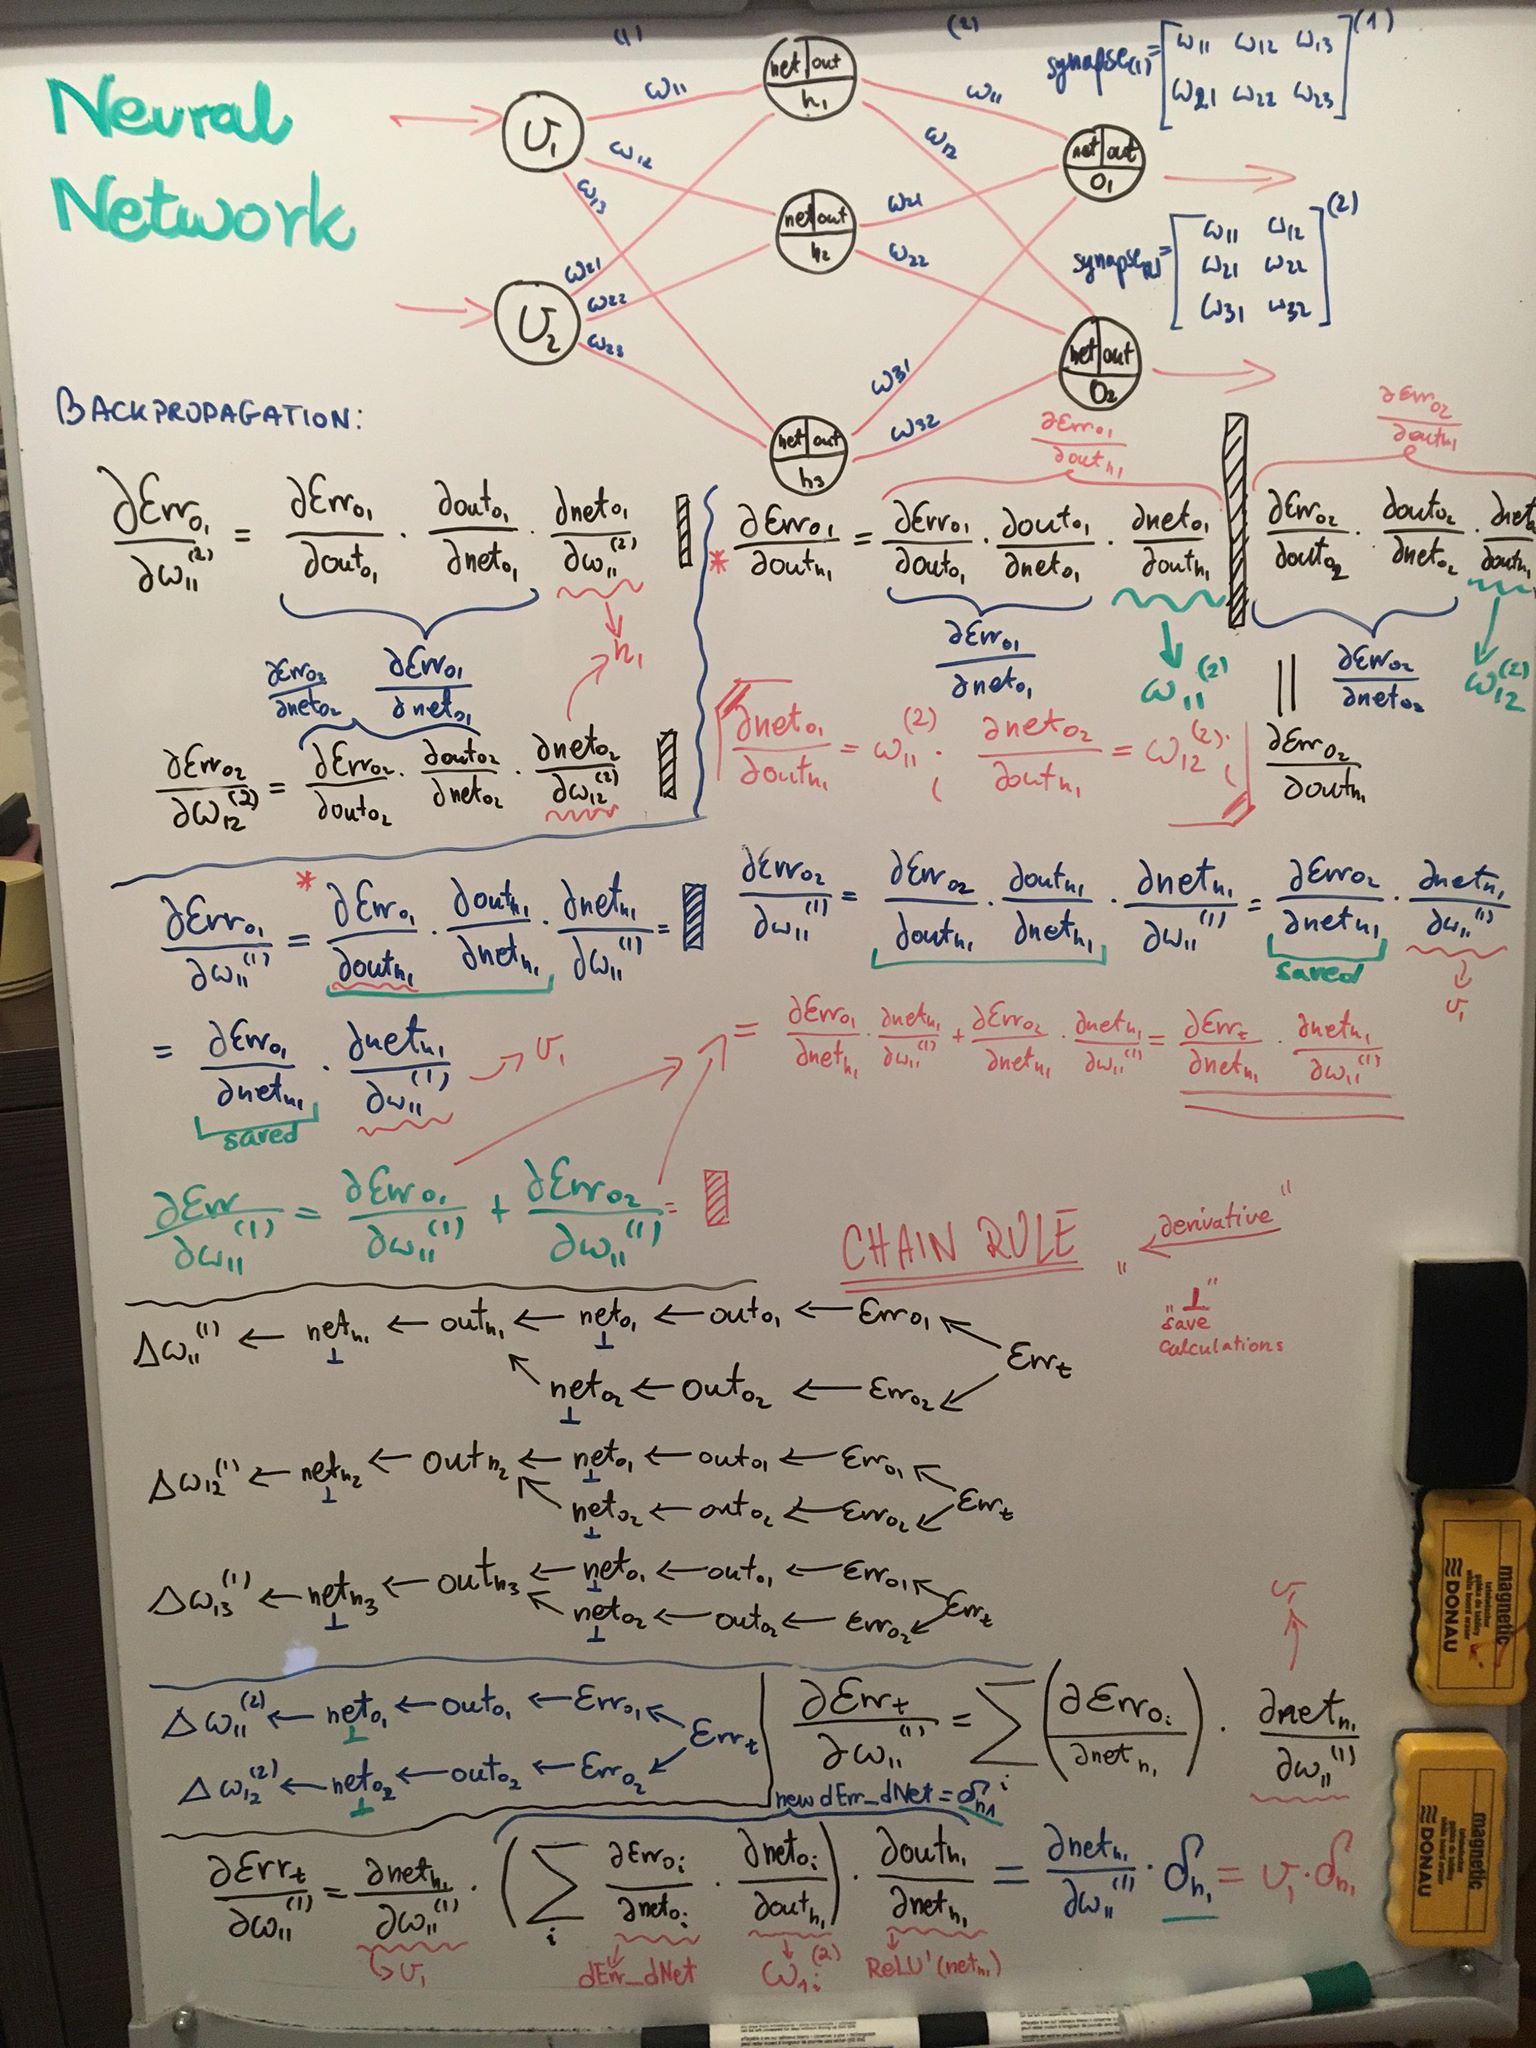 Neural
Network
(1) (2)
U₁
U₂
ω₁₁
ω₁₂
ω₁₃
ω₂₁
ω₂₂
ω₂₃
net|out h₁
net|out h₂
net|out h₃
ω₁₁
ω₁₂
ω₂₁
ω₂₂
ω₃₁
ω₃₂
net|out O₁
net|out O₂
synapse₍₁₎ = [ω₁₁ ω₁₂ ω₁₃
ω₂₁ ω₂₂ ω₂₃]⁽¹⁾
synapse₍₂₎ = [ω₁₁ ω₁₂
ω₂₁ ω₂₂
ω₃₁ ω₃₂]⁽²⁾
BACKPROPAGATION:
∂Err_o₁/∂ω₁₁⁽²⁾ = ∂Err_o₁/∂out_o₁ · ∂out_o₁/∂net_o₁ · ∂net_o₁/∂ω₁₁⁽²⁾
∂Err_o₂/∂net_o₂ ∂Err_o₁/∂net_o₁ → h₁
∂Err_o₂/∂ω₁₂⁽²⁾ = ∂Err_o₂/∂out_o₂ · ∂out_o₂/∂net_o₂ · ∂net_o₂/∂ω₁₂⁽²⁾
∂Err_o₁/∂out_h₁ ∂Err_o₂/∂out_h₁
* ∂Err_o₁/∂out_h₁ = ∂Err_o₁/∂out_o₁ · ∂out_o₁/∂net_o₁ · ∂net_o₁/∂out_h₁ ∂Err_o₂/∂out_o₂ · ∂out_o₂/∂net_o₂ · ∂net_o₂/∂out_h₁
∂Err_o₁/∂net_o₁ ω₁₁⁽²⁾ || ∂Err_o₂/∂net_o₂ ω₁₂⁽²⁾
∂net_o₁/∂out_h₁ = ω₁₁⁽²⁾; ∂net_o₂/∂out_h₁ = ω₁₂⁽²⁾; ∂Err_o₂/∂out_h₁
∂Err_o₁/∂ω₁₁⁽¹⁾ = * ∂Err_o₁/∂out_h₁ · ∂out_h₁/∂net_h₁ · ∂net_h₁/∂ω₁₁⁽¹⁾ =
= ∂Err_o₁/∂net_h₁ · ∂net_h₁/∂ω₁₁⁽¹⁾ → U₁
saved
∂Err_o₂/∂ω₁₁⁽¹⁾ = ∂Err_o₂/∂out_h₁ · ∂out_h₁/∂net_h₁ · ∂net_h₁/∂ω₁₁⁽¹⁾ = ∂Err_o₂/∂net_h₁ · ∂net_h₁/∂ω₁₁⁽¹⁾
saved ↓ U₁
= ∂Err_o₁/∂net_h₁ · ∂net_h₁/∂ω₁₁⁽¹⁾ + ∂Err_o₂/∂net_h₁ · ∂net_h₁/∂ω₁₁⁽¹⁾ = ∂Err_t/∂net_h₁ · ∂net_h₁/∂ω₁₁⁽¹⁾
∂Err/∂ω₁₁⁽¹⁾ = ∂Err_o₁/∂ω₁₁⁽¹⁾ + ∂Err_o₂/∂ω₁₁⁽¹⁾ =
CHAIN RULE
"← derivative"
"⊥"
save
calculations
Δω₁₁⁽¹⁾ ← net_h₁ ← out_h₁ ← net_o₁ ← out_o₁ ← Err_o₁ ← Err_t
⊥ ⊥
net_o₂ ← out_o₂ ← Err_o₂
⊥
Δω₁₂⁽¹⁾ ← net_h₂ ← out_h₂ ← net_o₁ ← out_o₁ ← Err_o₁ ← Err_t
⊥ ⊥
net_o₂ ← out_o₂ ← Err_o₂
⊥
Δω₁₃⁽¹⁾ ← net_h₃ ← out_h₃ ← net_o₁ ← out_o₁ ← Err_o₁ ← Err_t
⊥ ⊥
net_o₂ ← out_o₂ ← Err_o₂
⊥
Δω₁₁⁽²⁾ ← net_o₁ ← out_o₁ ← Err_o₁ ← Err_t
⊥
Δω₁₂⁽²⁾ ← net_o₂ ← out_o₂ ← Err_o₂
⊥
U₁
∂Err_t/∂ω₁₁⁽¹⁾ = Σᵢ (∂Err_oᵢ/∂net_h₁) · ∂net_h₁/∂ω₁₁⁽¹⁾
new dErr_dNet = δ_h₁
∂Err_t/∂ω₁₁⁽¹⁾ = ∂net_h₁/∂ω₁₁⁽¹⁾ · (Σᵢ ∂Err_oᵢ/∂net_oᵢ · ∂net_oᵢ/∂out_h₁) · ∂out_h₁/∂net_h₁ = ∂net_h₁/∂ω₁₁⁽¹⁾ · δ_h₁ = U₁ · δ_h₁
↳ U₁ dErr_dNet ω₁ᵢ⁽²⁾ ReLU'(net_h₁)
magnetic
DONAU
magnetic
DONAU